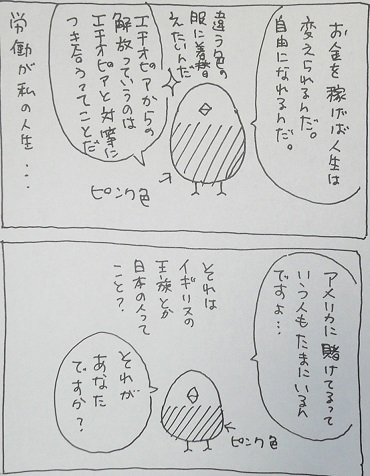 お金を稼げば人生は
変えられるんだ。
自由になれるんだ。
違う色の
服に着替
えたいんだ
エチオピアからの
解放っていうのは
エチオピアと対等に
つき合うってことだ
ピンク色
労働が私の人生…
アメリカに賭けてるって
いう人もたまにいるん
ですよ…
それは
イギリスの
王族とか
日本の人って
こと?
それが
あなた
ですか?
ピンク色